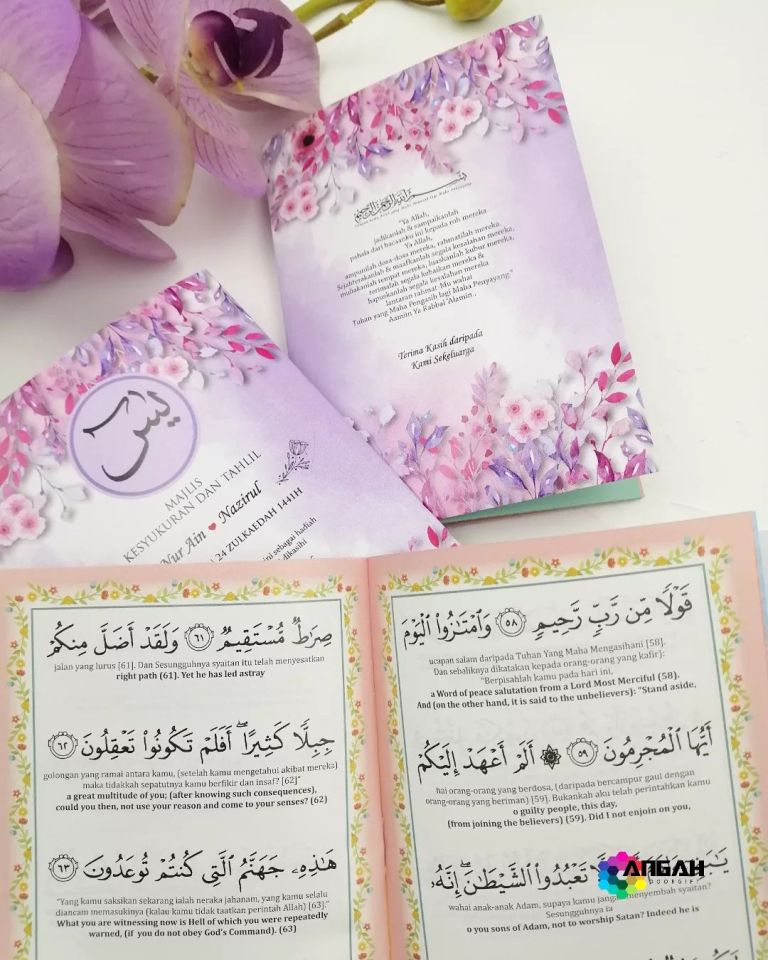 بسم الله الرحمن الرحيم
"Ya Allah,
jadikanlah & sampaikanlah
pahala dari bacaanku ini kepada roh mereka.
Ya Allah,
ampunilah dosa-dosa mereka, rahmatilah mereka.
Sejahterakanlah & maafkanlah segala kesalahan mereka,
muliakanlah tempat mereka, luaskanlah kubur mereka,
terimalah segala kebaikan mereka &
hapuskanlah segala kesalahan mereka
lantaran rahmat-Mu wahai
Tuhan yang Maha Pengasih lagi Maha Penyayang."
Aamiin Ya Rabbal 'Alamin..
Terima Kasih daripada
Kami Sekeluarga
يس
MAJLIS
KESYUKURAN DAN TAHLIL
Nur Ain Nazirul
24 ZULKAEDAH 1441H
ini sebagai hadiah
dikasihi
قَوْلًا مِّن رَّبٍّ رَّحِيمٍ ٥٨ وَٱمْتَـٰزُوا۟ ٱلْيَوْمَ
ucapan salam daripada Tuhan Yang Maha Mengasihani [58].
Dan sebaliknya dikatakan kepada orang-orang yang kafir):
"Berpisahlah kamu pada hari ini,
a Word of peace salutation from a Lord Most Merciful (58).
And (on the other hand, it is said to the unbelievers): "Stand aside,
أَيُّهَا ٱلْمُجْرِمُونَ ٥٩ ۞ أَلَمْ أَعْهَدْ إِلَيْكُمْ
hai orang-orang yang berdosa, (daripada bercampur gaul dengan
orang-orang yang beriman) [59]. Bukankah aku telah perintahkan kamu
o guilty people, this day.
(from joining the believers) (59). Did I not enjoin on you,
تَعْبُدُوا۟ ٱلشَّيْطَـٰنَ ۖ إِنَّهُۥ
wahai anak-anak Adam, supaya kamu jangan menyembah syaitan?
Sesungguhnya ia
o you sons of Adam, not to worship Satan? Indeed he is
صِرَٰطٌ مُّسْتَقِيمٌ ٦١ وَلَقَدْ أَضَلَّ مِنكُمْ
jalan yang lurus [61]. Dan Sesungguhnya syaitan itu telah menyesatkan
right path (61). Yet he has led astray
جِبِلًّا كَثِيرًا ۖ أَفَلَمْ تَكُونُوا۟ تَعْقِلُونَ ٦٢
golongan yang ramai antara kamu, (setelah kamu mengetahui akibat mereka)
maka tidakkah sepatutnya kamu berfikir dan insaf? [62]"
a great multitude of you; (after knowing such consequences),
could you then, not use your reason and come to your senses? (62)
هَـٰذِهِۦ جَهَنَّمُ ٱلَّتِى كُنتُمْ تُوعَدُونَ ٦٣
"Yang kamu saksikan sekarang ialah neraka jahanam, yang kamu selalu
diancam memasukinya (kalau kamu tidak taatkan perintah Allah) [63]."
What you are witnessing now is Hell of which you were repeatedly
warned, (if you do not obey God's Command). (63)
ANGAH
DOORGIFT